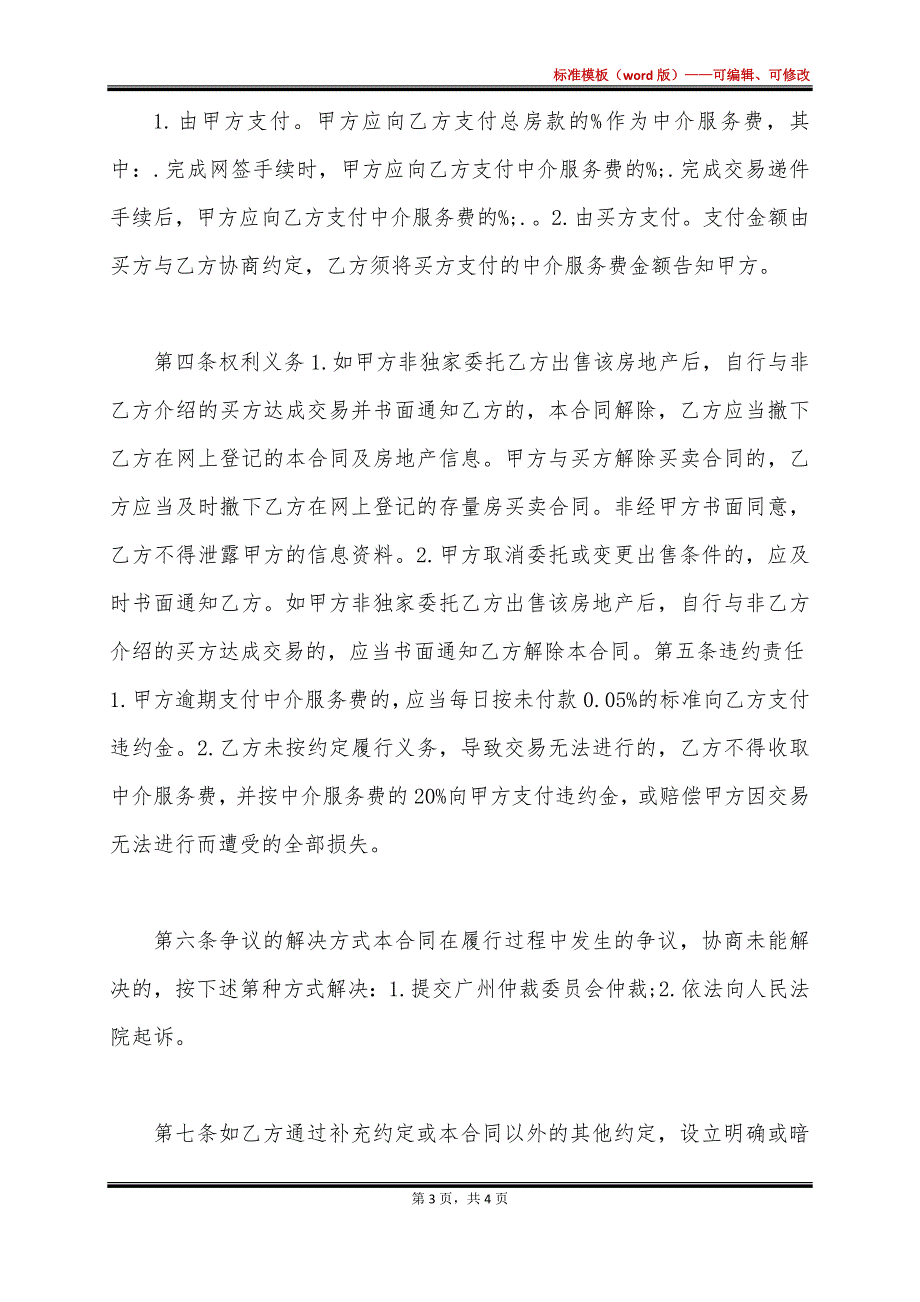 标准模板（word 版）——可编辑、可修改
1. 由甲方支付。甲方应向乙方支付总房款的%作为中介服务费，其
中：.完成网签手续时，甲方应向乙方支付中介服务费的%;.完成交易递件
手续后，甲方应向乙方支付中介服务费的%;.。2.由买方支付。支付金额由
买方与乙方协商约定，乙方须将买方支付的中介服务费金额告知甲方。
第四条权利义务 1.如甲方非独家委托乙方出售该房地产后，自行与非
乙方介绍的买方达成交易并书面通知乙方的，本合同解除，乙方应当撤下
乙方在网上登记的本合同及房地产信息。甲方与买方解除买卖合同的，乙
方应当及时撤下乙方在网上登记的存量房买卖合同。非经甲方书面同意，
乙方不得泄露甲方的信息资料。2.甲方取消委托或变更出售条件的，应及
时书面通知乙方。如甲方非独家委托乙方出售该房地产后，自行与非乙方
介绍的买方达成交易的，应当书面通知乙方解除本合同。第五条违约责任
1.甲方逾期支付中介服务费的，应当每日按未付款 0.05%的标准向乙方支付
违约金。2.乙方未按约定履行义务，导致交易无法进行的，乙方不得收取
中介服务费，并按中介服务费的 20%向甲方支付违约金，或赔偿甲方因交易
无法进行而遭受的全部损失。
第六条争议的解决方式本合同在履行过程中发生的争议，协商未能解
决的，按下述第种方式解决：1.提交广州仲裁委员会仲裁;2.依法向人民法
院起诉。
第七条如乙方通过补充约定或本合同以外的其他约定，设立明确或暗
第 3 页，共 4 页